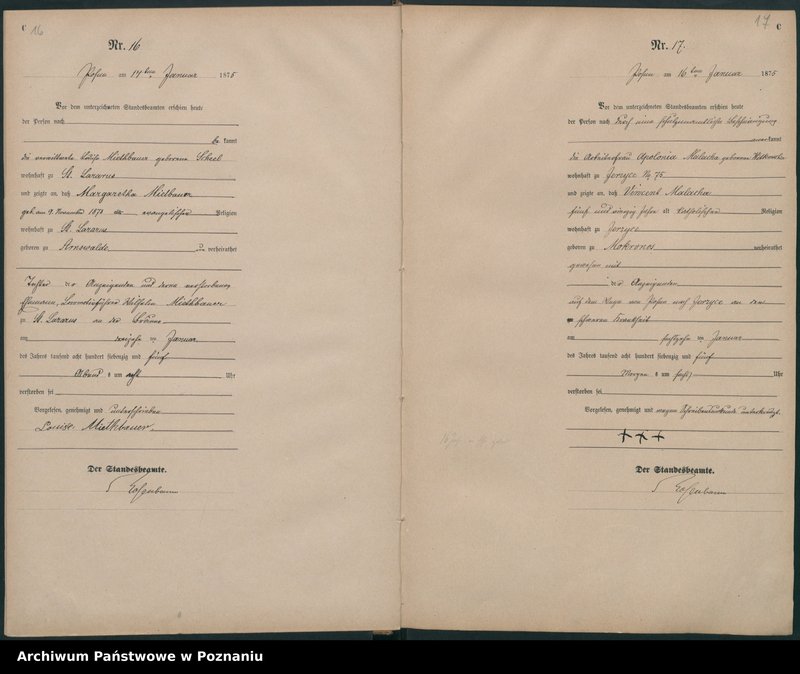 C 16
Nr. 16
Posen am 14ten Januar 1875
Vor dem unterzeichneten Standesbeamten erschien heute
der Person nach
be kannt
die verwittwete Louise Miethbauer geborene Scheel
wohnhaft zu St. Lazarus
und zeigte an, daß Margaretha Miethbauer
geb. am 9. November 1873 evangelischer Religion
wohnhaft zu St. Lazarus
geboren zu Arnswalde verheirathet
Tochter der Anzeigenden und deren verstorbenen
Ehemann, Locomotivführer Wilhelm Miethbauer
zu St. Lazarus an der Bräune
am dreizehn ten Januar
des Jahres tausend acht hundert siebenzig und fünf
Abend s um acht Uhr
verstorben sei
Vorgelesen, genehmigt und unterschrieben
Louise Miethbauer.
Der Standesbeamte.
17 C
Nr. 17.
Posen am 16ten Januar 1875
Vor dem unterzeichneten Standesbeamten erschien heute
der Person nach durch eine
kannt
die Arbeiterfrau Apolonia Malucha geborene
wohnhaft zu Jerzyce No 75
und zeigte an, daß Vincent Malucha
fünf und vierzig Jahre alt katholischer Religion
wohnhaft zu Jerzyce
geboren zu Mokronos verheirathet
gewesen mit
der Anzeigenden
auf dem Wege von Posen nach Jerzyce an der
schweren Krankheit
am sechszehn ten Januar
des Jahres tausend acht hundert siebenzig und fünf
Morgen s um sechs Uhr
verstorben sei
Vorgelesen, genehmigt und wegen Schreibensunkunde unterkreuzt.
+++
Der Standesbeamte.
Archiwum Państwowe w Poznaniu